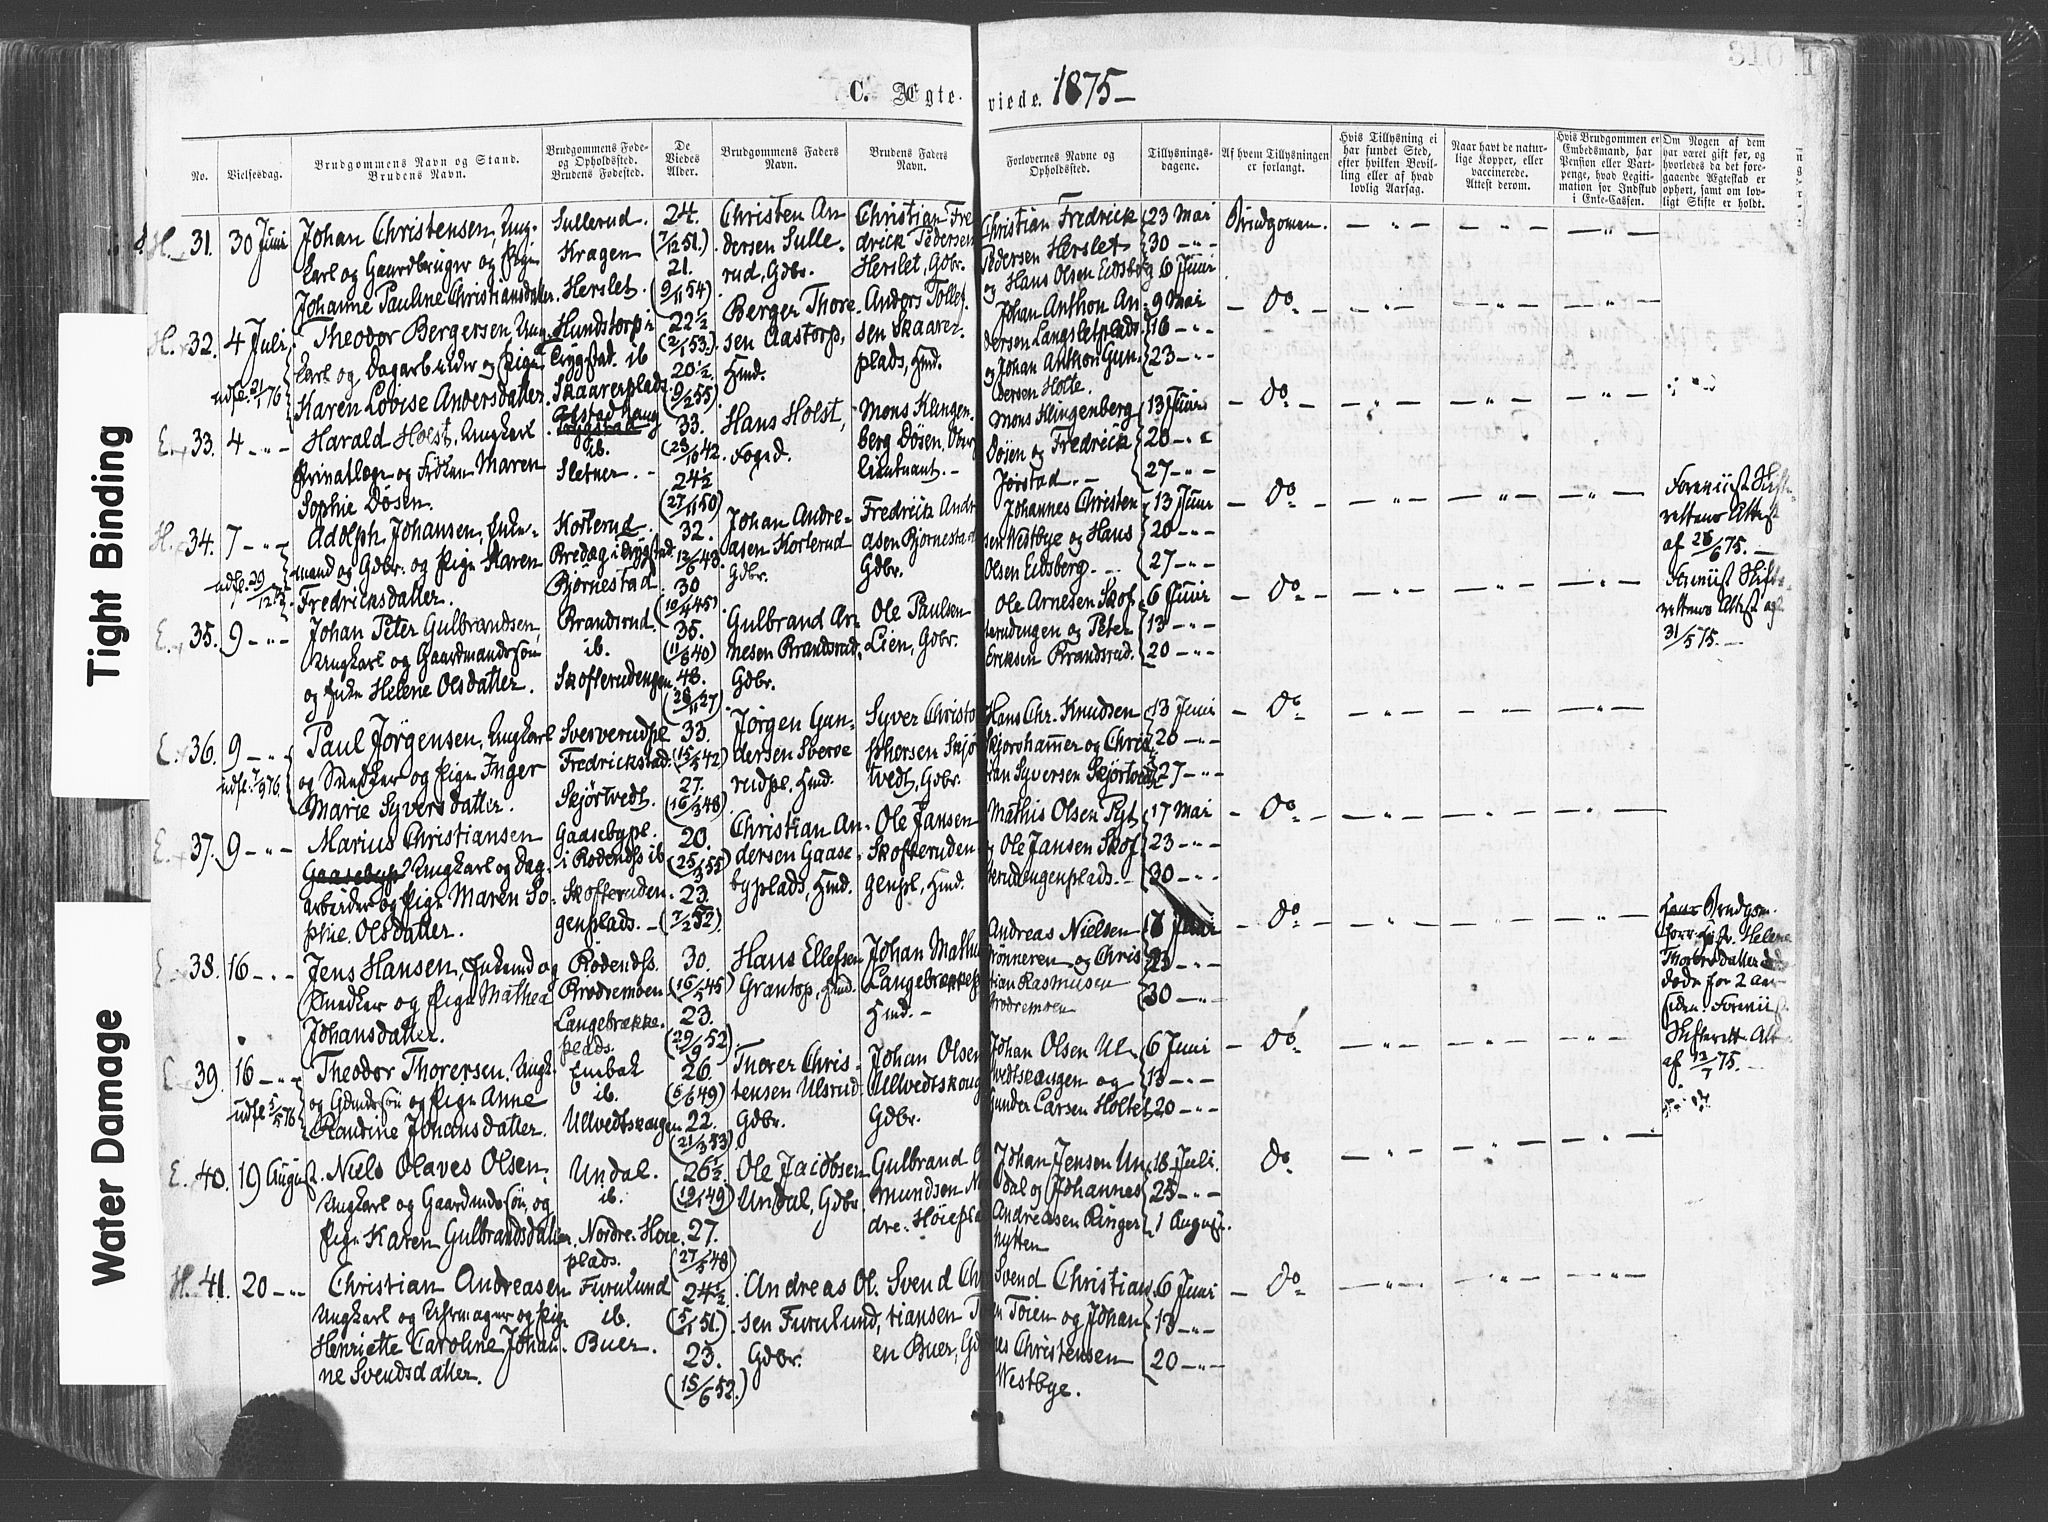 C. Ægteviede. 1875 —
No.
Vielsesdag.
Brudgommens Navn og Stand.
Brudens Navn.
Brudgommens Føde-
og Opholdssted.
Brudens Fødested.
De
Viedes
Alder.
Brudgommens Faders
Navn.
Brudens Faders
Navn.
Forlovernes Navne og
Opholdssted.
Tillysnings-
dagene.
Af hvem Tillysningen
er forlangt.
Hvis Tillysning ei
har fundet Sted,
efter hvilken Bevil-
ling eller af hvad
lovlig Aarsag.
Naar havt de natur-
lige Kopper, eller
vaccinerede.
Attest derom.
Hvis Brudgommen er
Embedsmand, har
Pension eller Vart-
penge, hvad Legiti-
mation for Indskud
i Enke-Cassen.
Om Nogen af dem
har været gift før, og
hvorledes da det fore-
gaaende Ægteskab er
ophørt, samt om lov-
ligt Skifte er holdt.
H. 31. 30 Juni
Johan Christensen, Ung-
karl og Gaardbruger og Pige
Johanne Pauline Christiansdatter.
Sullerud.
Kragen
Herslet.
24.
(7/12 51.)
21.
(9/11 54)
Christen An-
dersen Sulle-
rud, Gdbr.
Christian Fre-
drick Pedersen
Herslet, Gdbr.
Christian Fredrick
Pedersen Herslet
og Hans Olsen Eidsberg
23 Mai
30 — " —
6 Juni
Brudgomen.
H. 32. 4 Juli
udfl. 21/1 76
Theodor Bergersen, Ung-
karl og Dagarbeider og Pige
Karen Lovise Andersdatter.
Hundstorp i
Trygstad. ib
Skaarerplads.
22 1/2
(2/1 53.)
20 1/2
(9/2 55)
Berger Thore-
sen Aastorp,
Hmd.
Anders Tollef-
sen Skaarer-
plads, Hmd.
Johan Anthon An-
dersen Langsletplads
og Johan Anthon Gun-
dersen Holte.
9 Mai
16 — " —
23 — " —
Do
E. 33. 4 — " —
Harald Holst, Ungkarl
Privatlæge og Frøken Maren
Sophie Døsen.
ib.
Sletner.
33.
(23/10 42.
24 1/2
(27/11 50)
Hans Holst,
Foged.
Mons Klingen-
berg Døsen, Ober-
lieutnant.
Mons Klingenberg
Døsen og Fredrick
Jørstad.
13 Juni
20 — " —
27 — " —
Do
H. 34. 7 — " —
udfl. 29/12
Adolph Johansen, Enke-
mand og Gdbr. og Pige Karen
Fredricksdatter.
Korterud.
Bredag i Trygstad.
Bjørnestad.
32.
12/6 43.
30
(10/4 45)
Johan Andre-
asen Korterud
Gdbr.
Fredrick Andre-
asen Bjørnestad
Gdbr.
Johannes Christen
sen Westbye og Hans
Olsen Eidsberg.
13 Juni
20 — " —
27 — " —
Do
Foreviist Skifte-
rettens Attest
af 28/6 75. —
E. 35. 9 — " —
Johan Peter Gulbrandsen,
Ungkarl og Gaardmandssøn
og Enke Helene Olsdatter.
Brandsrud.
ib.
Skofterudengen.
35.
(11/8 40)
48.
(28/11 27)
Gulbrand Ar-
nesen Brandsrud,
Gdbr.
Ole Paulsen
Lien, Gdbr.
Ole Arnesen Skof-
terudengen og Peter
Eriksen Brandsrud.
6 Juni
13 — " —
20 — " —
Do
Foreviist Skifte-
rettens Attest af
31/5 75. —
E. 36. 9 — " —
udfl. 7/9 76.
Paul Jørgensen, Ungkarl
og Snedker og Pige Inger
Marie Syversdatter.
Sververudpl.
Fredrickstad.
Skjørtvedt.
33.
(15/5 42)
27.
(16/3 48)
Jørgen Gun-
dersen Sverve
rudpl. Hmd.
Syver Christo
phersen Skjør
tvedt, Gdbr.
Hans Chr. Knudsen
Skjorshammer og Chris
tian Syversen Skjørtvedt
13 Juni
20 — " —
27 — " —
Do
E. 37. 9 — " —
Marius Christiansen
Gaasebypl. Ungkarl og Dag-
arbeider og Pige Maren So-
phie Olsdatter.
Gaasebypl.
i Rødenæs ib
Skofteruden-
genplads. —
20.
(25/3 55)
23.
(7/2 52)
Christian An-
dersen Gaase-
byplads, Hmd.
Ole Jansen
Skofteruden
genpl, Hmd.
Mathis Olsen Pyt,
og Ole Jansen Skof-
terudengenplads.
17 Mai
23 — " —
30 — " —
Do
E. 38. 16 — " —
Jens Hansen, Enkemd og
Snedker og Pige Mathea
Johansdatter.
Rødenæs.
Brødremoen.
Langebrække-
plads.
30.
(16/5 45)
23.
(29/9 52)
Hans Ellefsen
Grantop, Hmd.
Johan Mathi
Langebrækkepl
Hmd. —
Andreas Nielsen
Brønneren og Chris
tian Rasmusen
Brødremoen
23 — " —
30 — " —
Do
Brudgom.
Helene
Thorersdatter
døde for 2 Aar
siden. Foreviist
Skifterett. Att.
af 12/7 75.
E. 39. 16 — " —
udfl. 5/5 76
Theodor Thorersen, Ungk.
og Gdmdssøn og Pige Anne
Randine Johansdatter.
Embak
ib.
Ullvedtskougen
26.
(6/6 49)
22.
(21/3 53)
Thorer Chris-
tensen Ulsrud
Gdbr.
Johan Olsen
Ullvedtskoug
Gdbr.
Johan Olsen Ul-
vedtskougen og
Gunder Larsen Holtet
6 Juni
13 — " —
20 — " —
Do
E. 40. 19 August.
Niels Olaves Olsen,
Ungkarl og Gaardmdssøn, og
Pige Karen Gulbrandsdatter.
Undal.
ib.
Nordre-Høie-
plads.
26 1/2
(19/1 49)
27.
(27/5 48)
Ole Jacobsen
Undal, Gdbr.
Gulbrand
mundsen No
dre-Høiepla
Johan Jensen Un-
dal og Johannes
Andreasen Ringer
hytten
18 Juli.
25 — " —
1 August.
Do
H. 41. 20 — " —
Christian Andreasen
Ungkarl og Uhrmager og Pige
Henriette Caroline Johan-
ne Svendsdatter.
Furulund
ib.
Buer.
24 1/2
(5/1 51.)
23.
(15/6 52.)
Andreas Ol-
sen Furulund,
Gdbr.
Svend Chr
tiansen T
en Buer, Gd
Svend Christian
Toien og Johan
nes Christensen
Westbye.
6 Juni
13 — " —
20 — " —
Do
Tight Binding
Water Damage